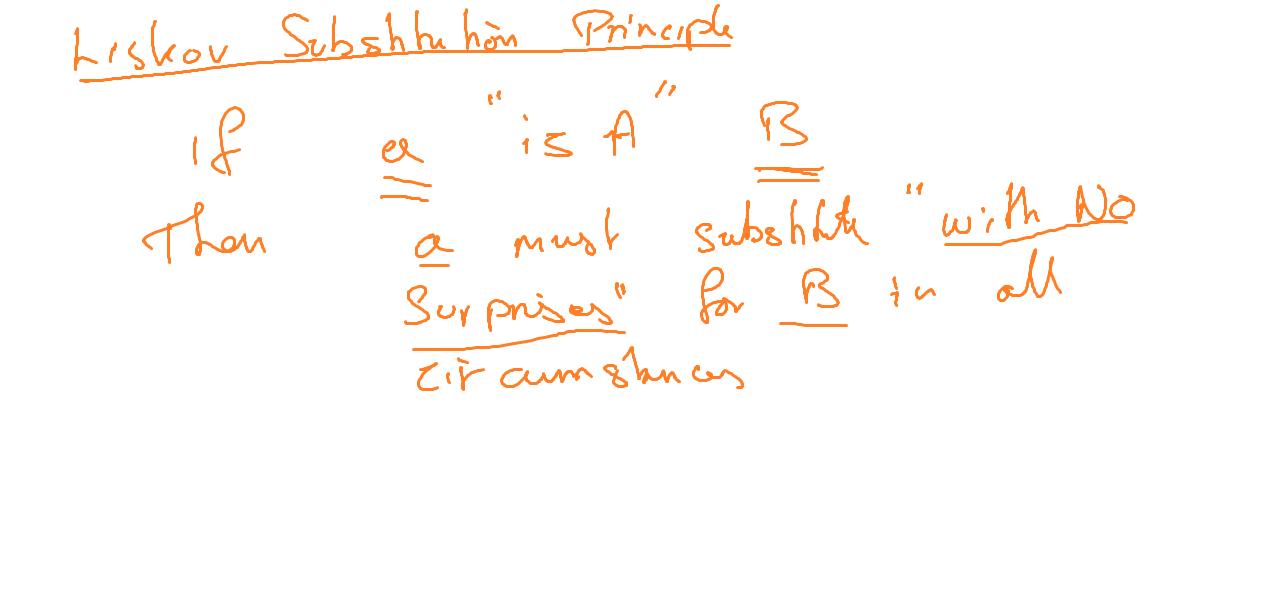 Liskov Substitution Principle
If a "is A" B
Then a must substitute "with No
Surprises" for B in all
circumstances